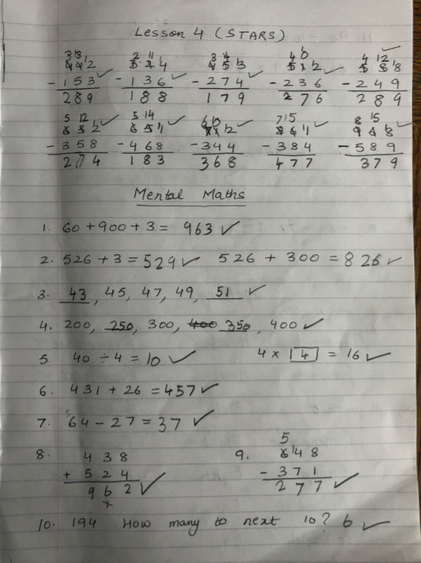 Lesson 4 (STARS)
442 324 453 512 538
- 153 - 136 - 274 - 236 - 249
289 188 179 276 289
632 651 712 861 968
- 358 - 468 - 344 - 384 - 589
274 183 368 477 379
Mental Maths
1. 60 + 900 + 3 = 963 ✓
2. 526 + 3 = 529 ✓ 526 + 300 = 826 ✓
3. 43, 45, 47, 49, 51 ✓
4. 200, 250, 300, 400 350, 400 ✓
5 40 ÷ 4 = 10 ✓ 4 × 4 = 16 ✓
6. 431 + 26 = 457 ✓
7. 64 - 27 = 37 ✓
8. 438 9. 648
+ 524 - 371
962 ✓ 277 ✓
10. 194 How many to next 10? 6 ✓